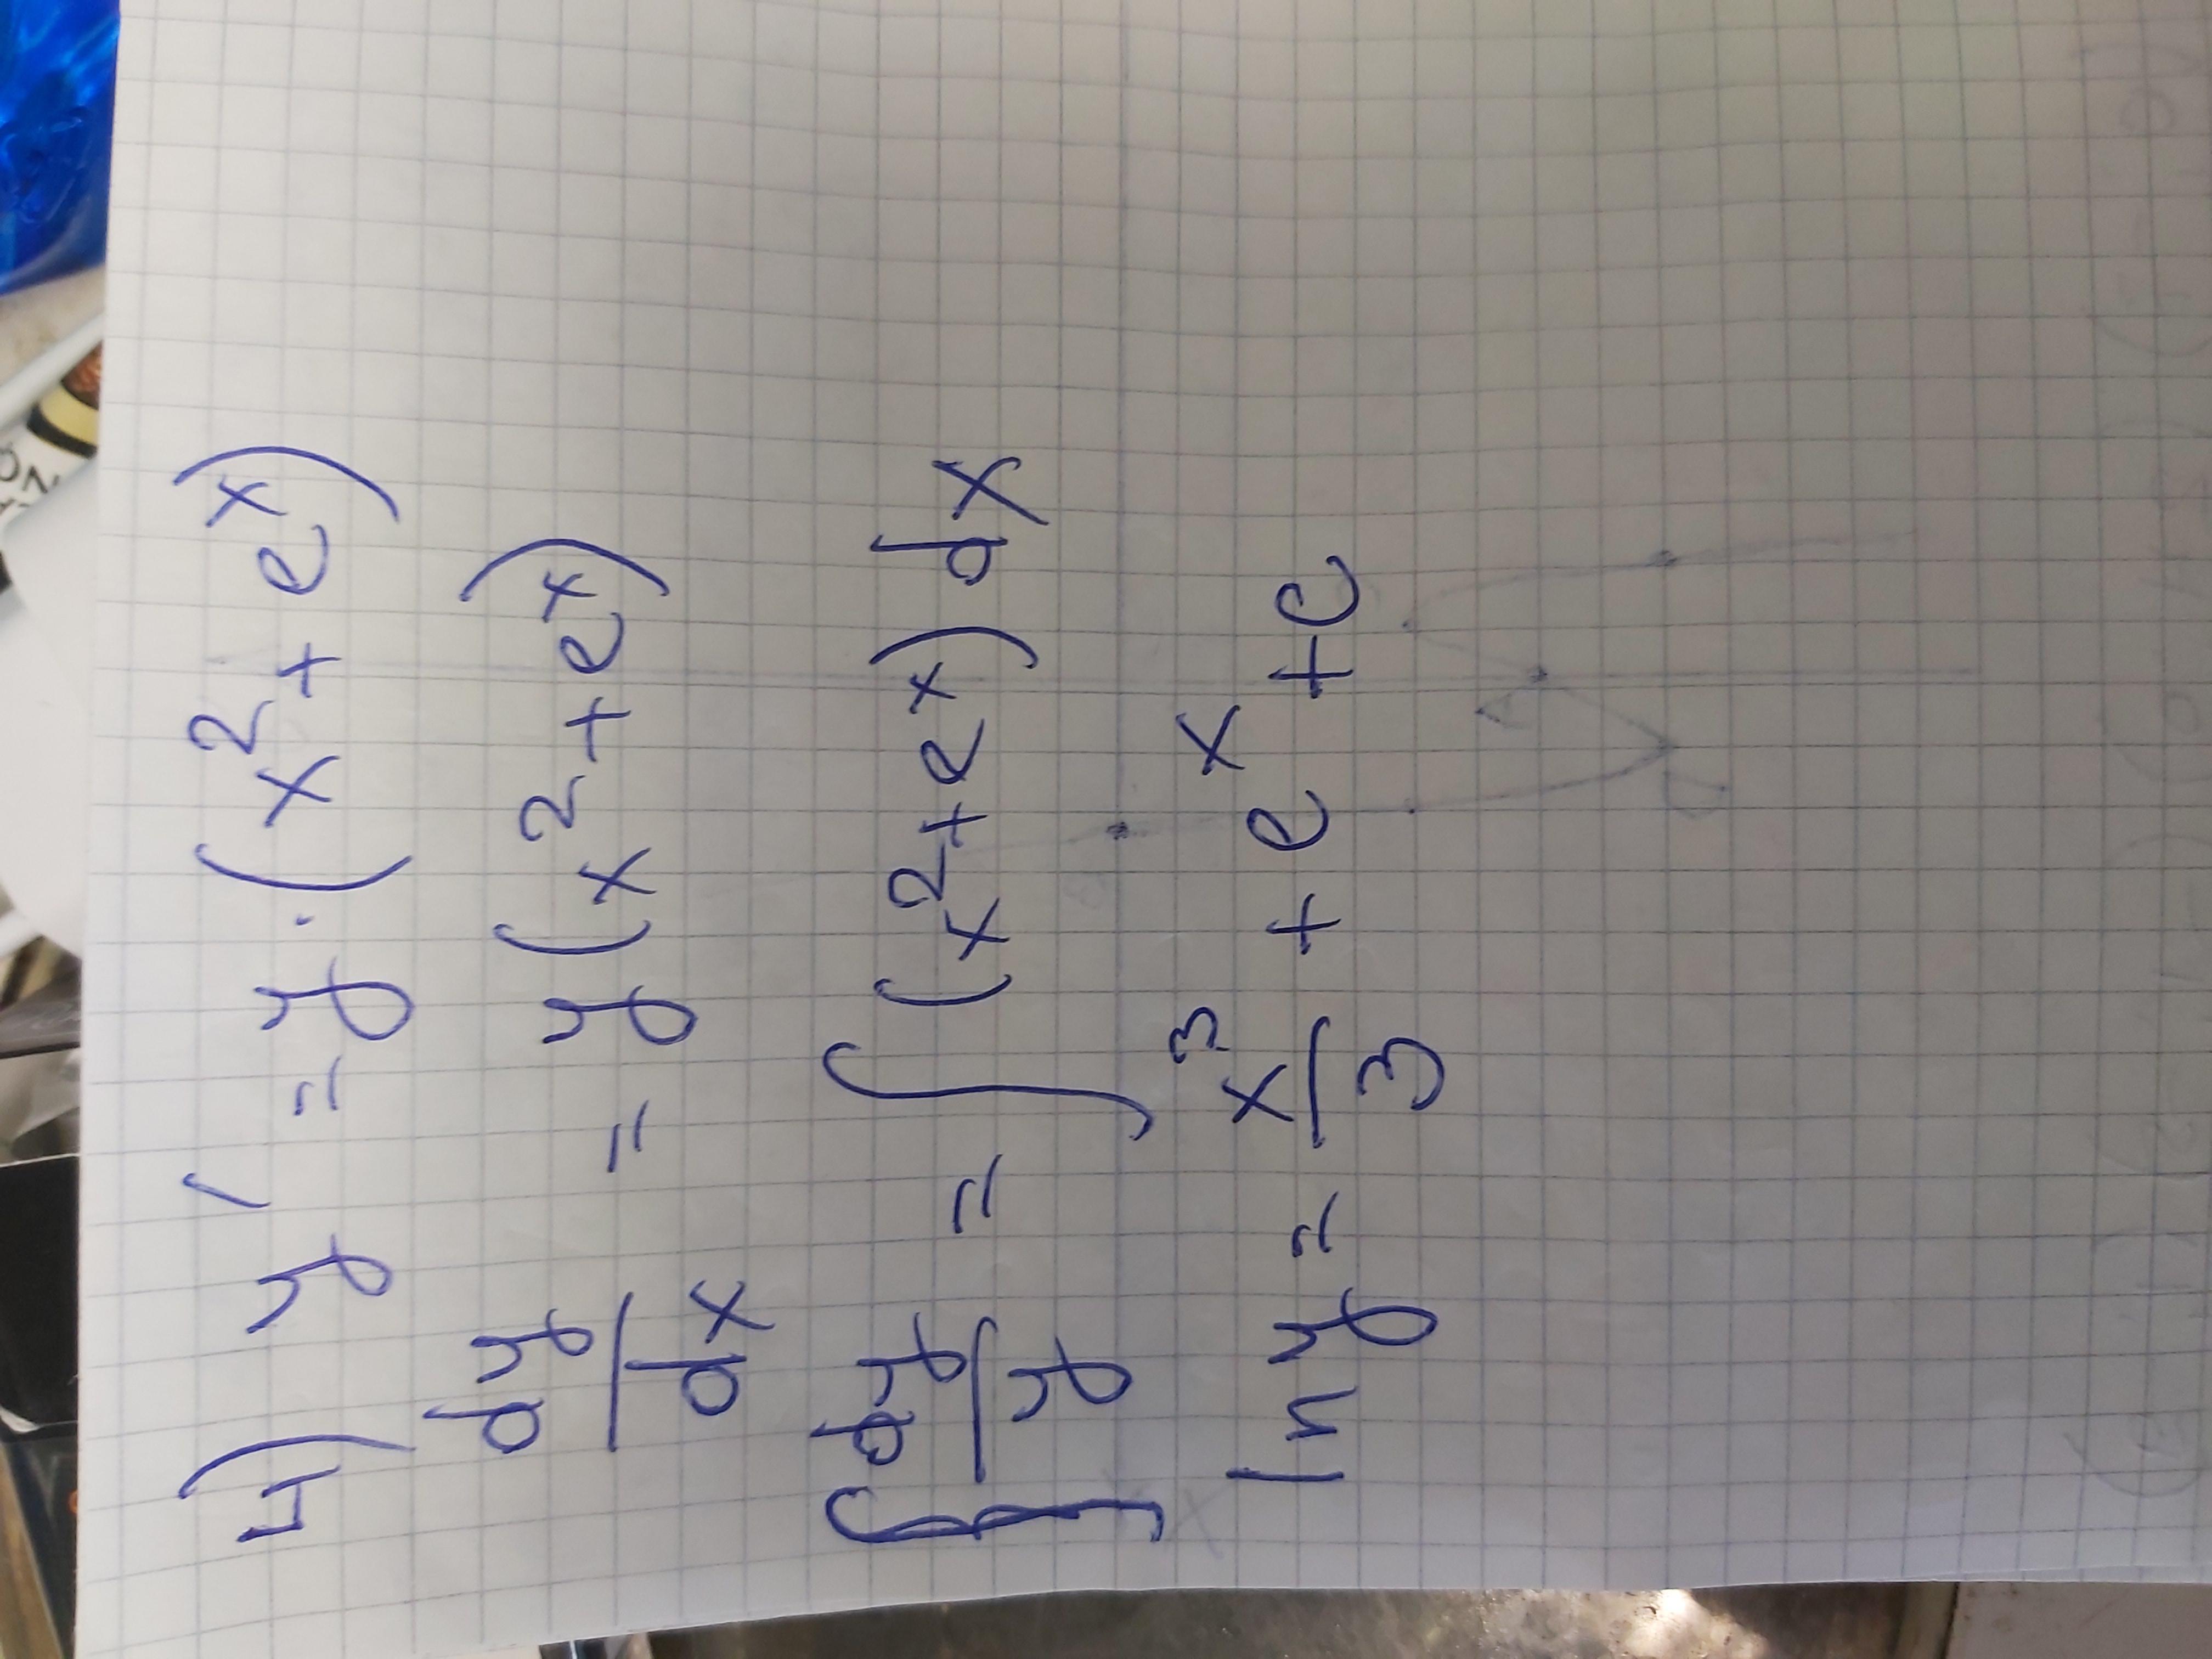 4) y' = y · (x² + eˣ)
dy/dx = y (x² + eˣ)
∫ dy/y = ∫ (x² + eˣ) dx
ln y = x³/3 + eˣ + c